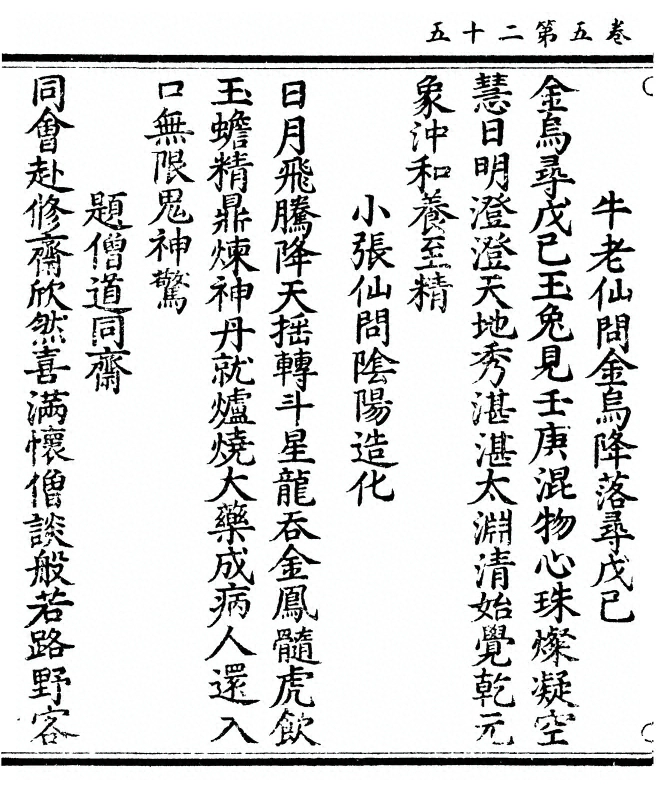 卷五第二十五
牛老仙問金烏降落尋戊己
金烏尋戊己玉兔見壬庚混物心珠燦凝空
慧日明澄澄天地秀湛湛太淵清始覺乾元
象沖和養至精
小張仙問陰陽造化
日月飛騰降天揺轉斗星龍吞金鳳髓虎飲
玉蟾精鼎煉神丹就爐燒大藥成病人還入
口無限鬼神驚
題僧道同齋
同會赴修齋欣然喜滿懷僧談般若路野客